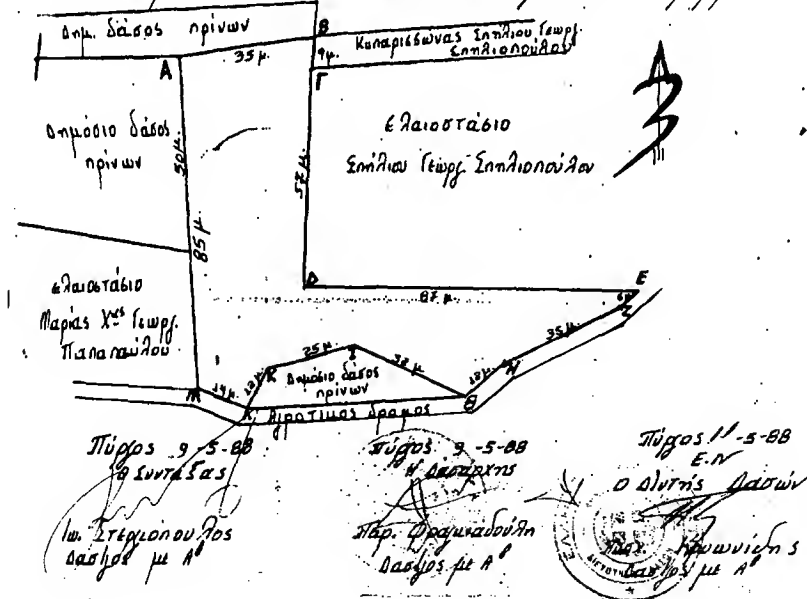 Δημ. δάσος πρίνων
Β
Κυπαρισσώνας Σπήλιου Γεωργ.
Σπηλιοπούλου
35 μ.
9μ.
Α
Γ
Δημόσιο δάσος
πρίνων
50 μ.
57 μ.
Ελαιοστάσιο
Σπήλιου Γεωργ. Σπηλιοπούλου
85 μ.
Δ
87 μ.
Ε
6μ
Ζ
ελαιοστάσιο
Μαρίας Χας Γεωργ.
Παπαπαύλου
35 μ.
Η
18 μ.
Θ
32 μ.
Ι
25 μ.
Κ
Δημόσιο δάσος
πρίνων
Μ
14μ.
Λ
Αγροτικός δρόμος
Πύργος 9-5-88
Ο Συντάξας
Ιω. Στεργιόπουλος
Δασ/γος με Α'
Πύργος 9-5-88
Η Δασάρχης
Παρ.
Δασ/γος με Α'
Πύργος 11-5-88
Ε.Ν
Ο Δ/ντής Δασών
Δασ/γος με Α'